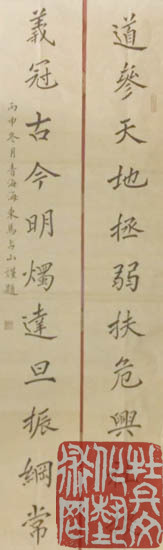 道參天地拯弱扶危興
義冠古今明燭達旦振綱常
丙申冬月青海海東馬占山謹題